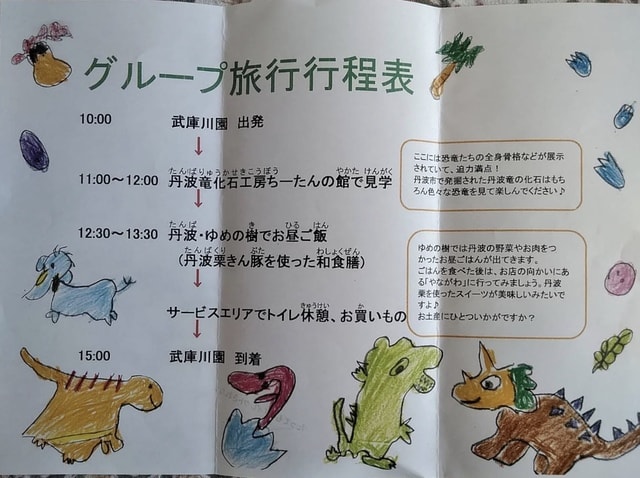 グループ旅行行程表
10:00 武庫川園 出発
↓
たんばりゅうかせきこうぼう やかた けんがく
11:00～12:00 丹波竜化石工房ちーたんの館で見学
↓
たんば き ひる はん
12:30～13:30 丹波・ゆめの樹でお昼ご飯
たんばくり ぶた わしょくぜん
(丹波栗きん豚を使った和食膳)
↓
きゅうけい か
サービスエリアでトイレ休憩、お買いもの
↓
15:00 武庫川園 到着
ここには恐竜たちの全身骨格などが展示
されていて、迫力満点!
丹波市で発掘された丹波竜の化石はもち
ろん色々な恐竜を見て楽しんでください♪
ゆめの樹では丹波の野菜やお肉をつ
かったお昼ごはんが出てきます。
ごはんを食べた後は、お店の向かいにあ
る「やながわ」に行ってみましょう。丹波
栗を使ったスイーツが美味しいみたいで
すよ♪
お土産にひとついかがですか?